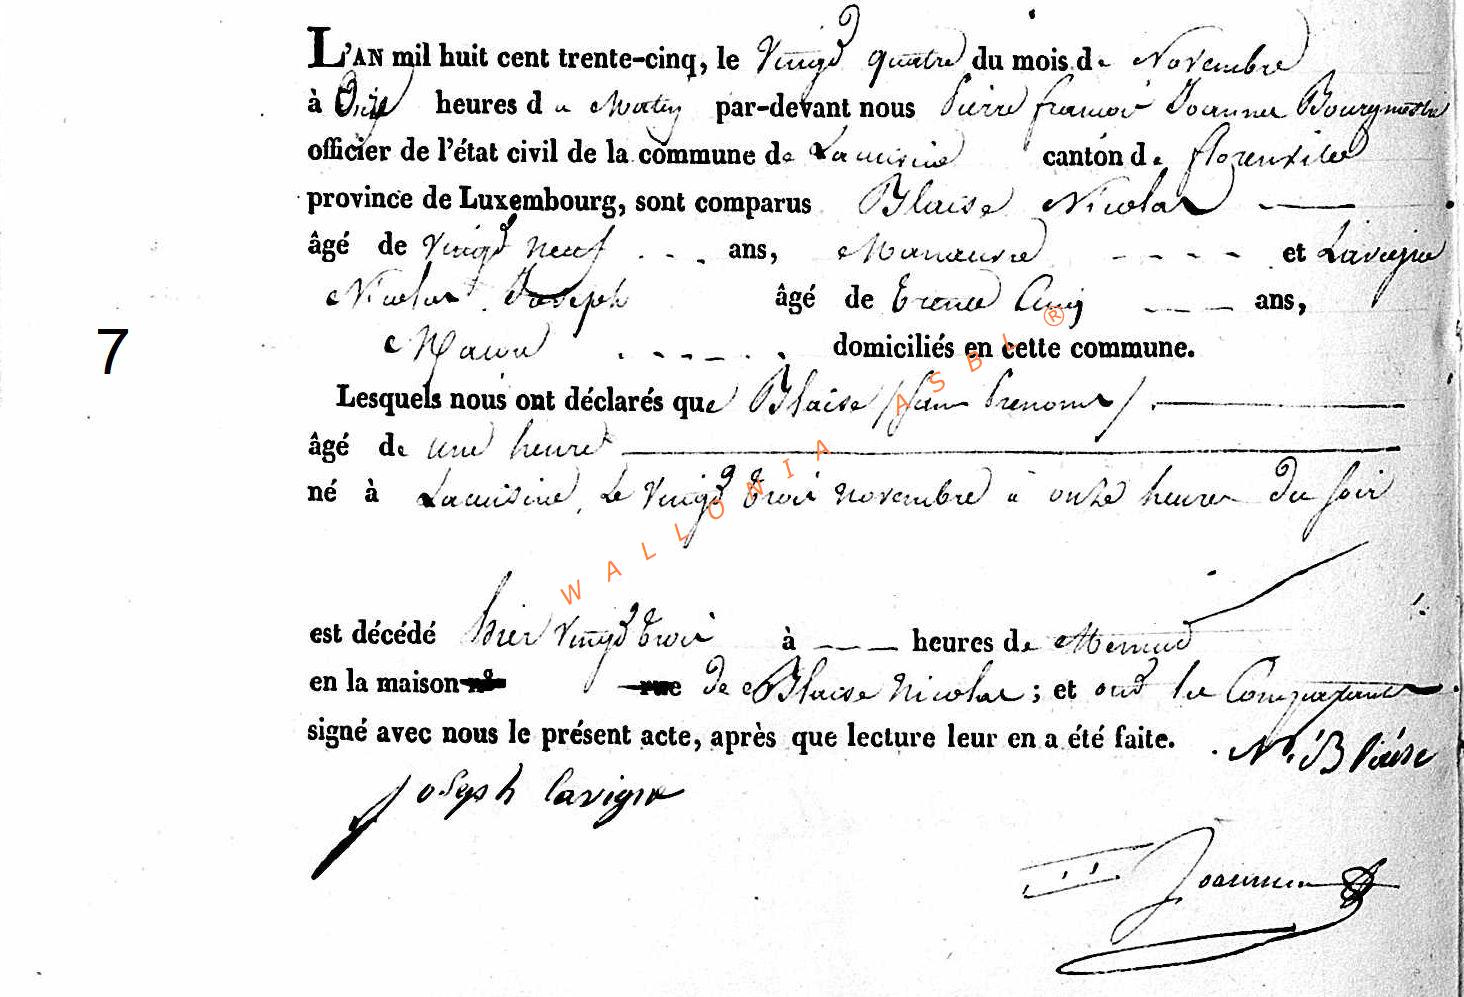 L'AN mil huit cent trente-cinq, le Vingt quatre du mois de Novembre
à Dix heures du Matin par-devant nous Pierre françois Joannes Bourgmestre
officier de l'état civil de la commune de Lacuisine canton de florenville
province de Luxembourg, sont comparus Blaise Nicolas
âgé de Vingt neuf ans, Manœuvre et Lavigne
Nicolas Joseph âgé de trente Cinq ans,
Maçon domiciliés en cette commune.
7
Lesquels nous ont déclarés que Blaise /sans Prenoms/
âgé de une heure
né à Lacuisine, Le Vingt trois novembre à onze heures du soir
est décédé hier Vingt trois à heures de Menuit
en la maison n° rue de Blaise Nicolas ; et ont les Comparants
signé avec nous le présent acte, après que lecture leur en a été faite. N. Blaise
Joseph Lavigne
Joannes
WALLONIA ASBL ®